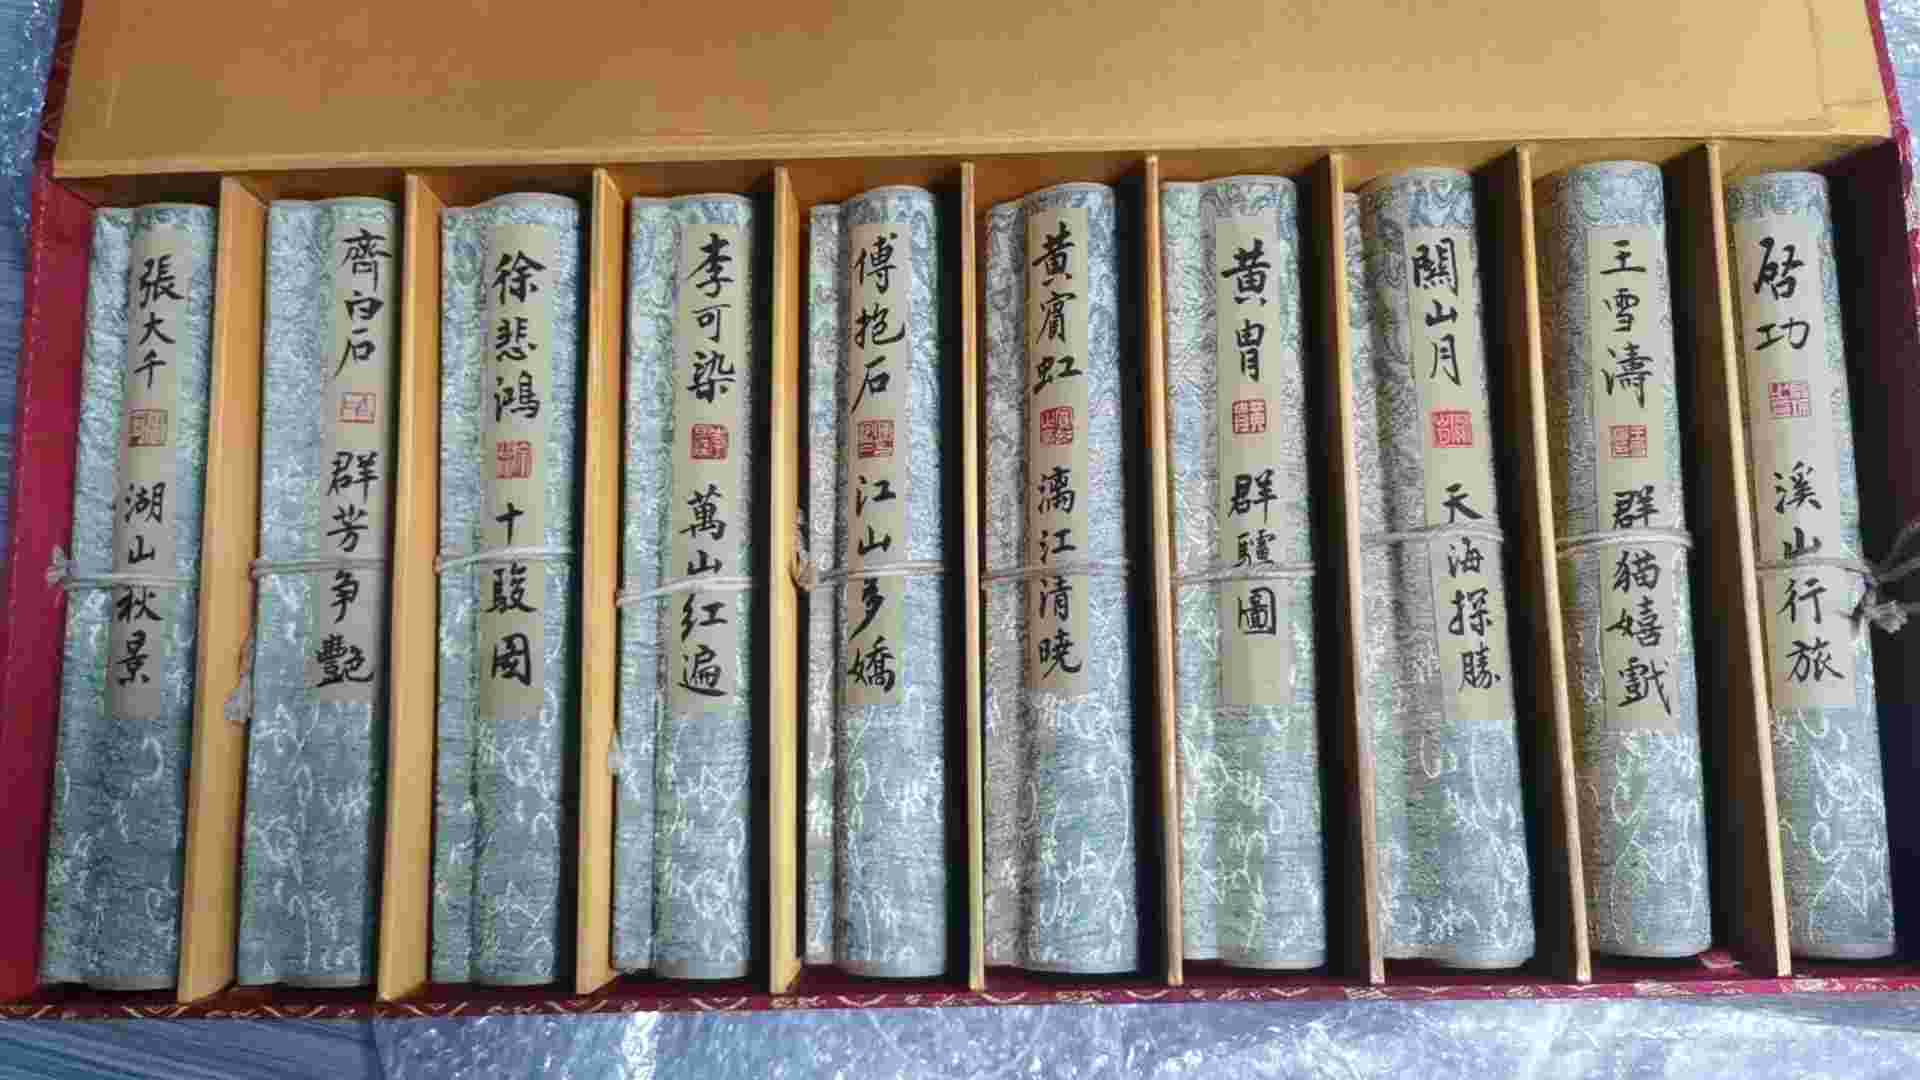 張大千 湖山秋景
齊白石 群芳争艷
徐悲鴻 十駿图
李可染 萬山红遍
傅抱石 江山多嬌
黄賓虹 漓江清曉
黄胄 群驢圖
關山月 天海探勝
王雪濤 群猫嬉戲
启功 溪山行旅